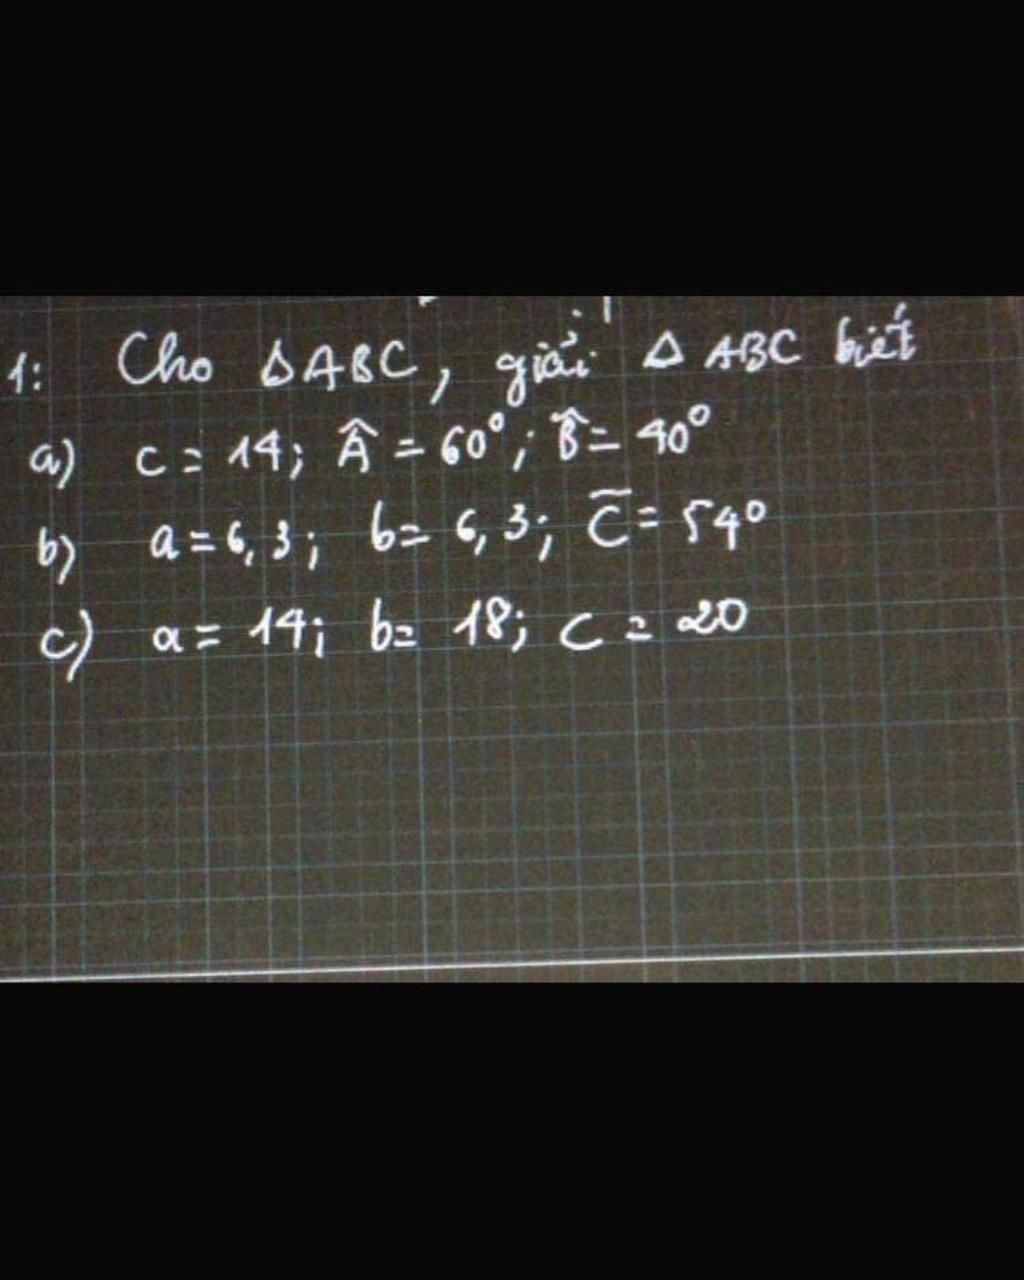 1: Cho ΔABC, giải Δ ABC biết
a) c = 14; Â = 60°; B̂ = 40°
b) a = 6,3; b = 6,3; C̄ = 54°
c) a = 14; b = 18; c = 20